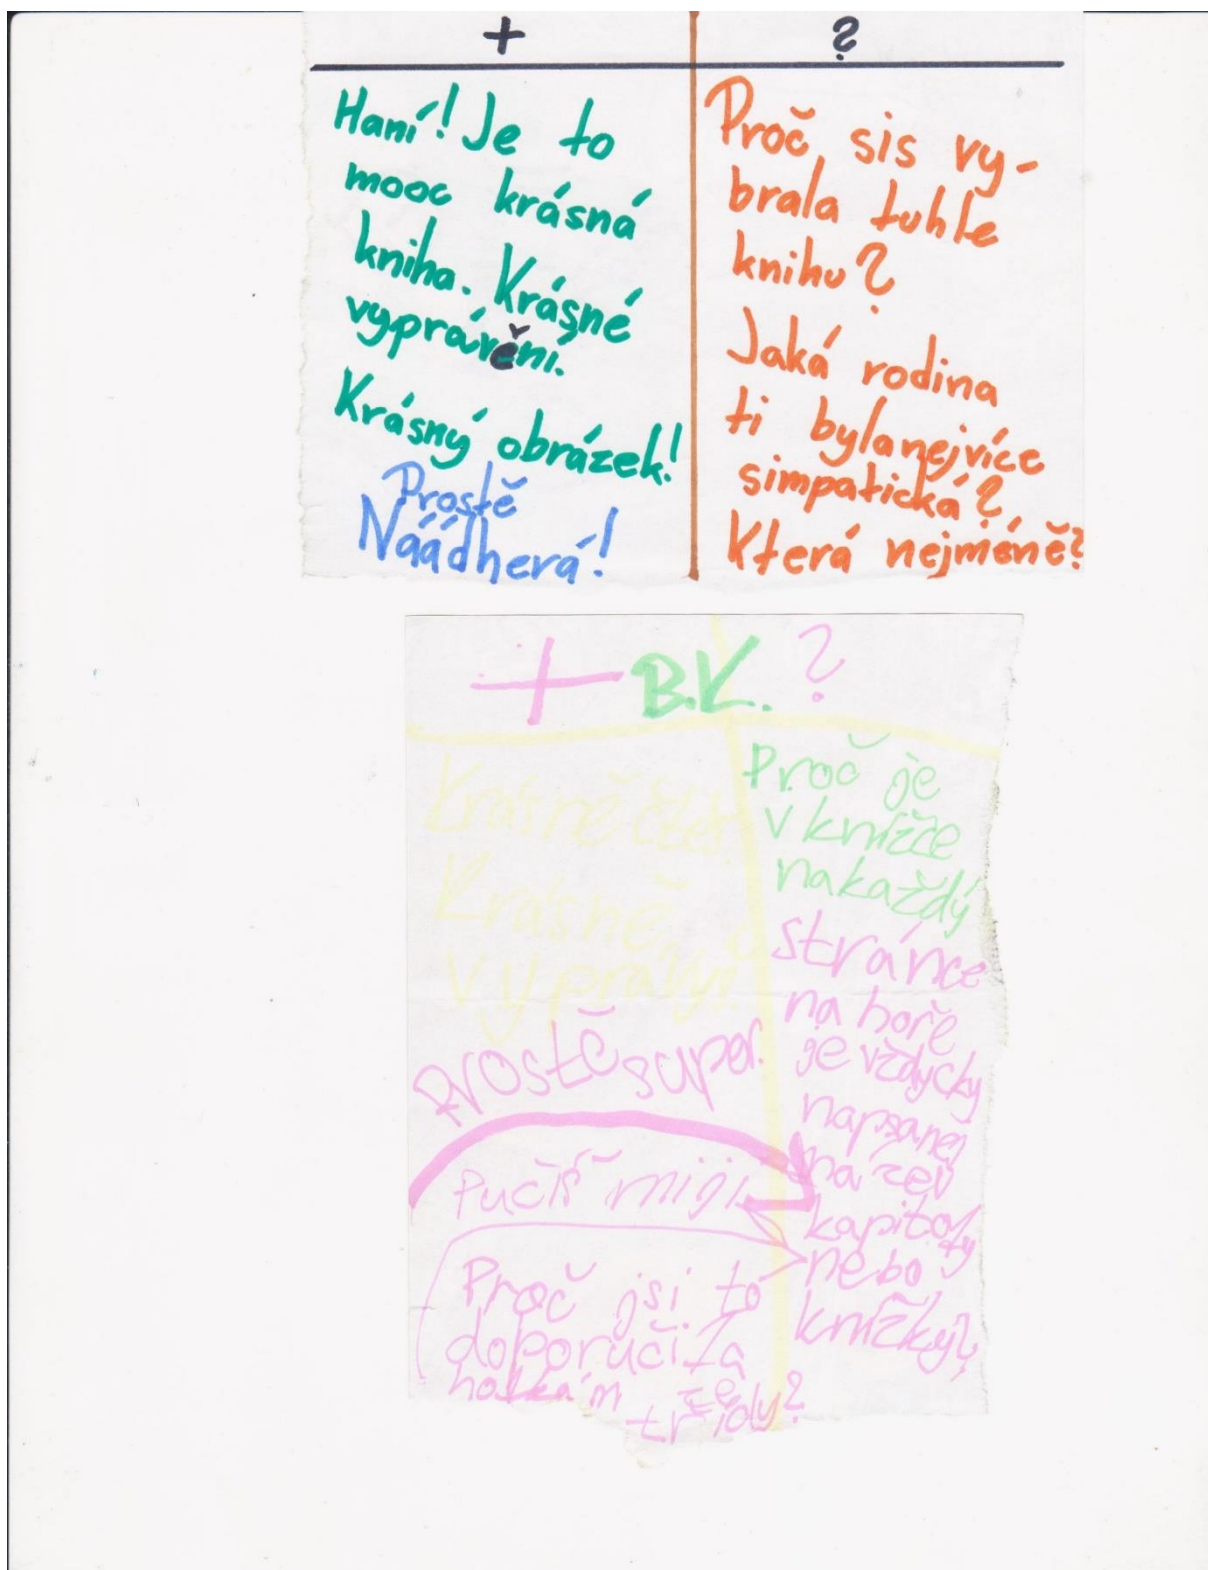 +
?
Haní! Je to
mooc krásná
kniha. Krásné
vyprávění.
Krásný obrázek!
Prostě
Náádherá!
Proč sis vy-
brala tuhle
knihu?
Jaká rodina
ti bylanejvíce
simpatická?
Která nejméně?
+ B.K. ?
Krásně čteš.
Krásně
vyprávýš.
Prostě super.
Pučíš mi ji.
Proč jsi to
doporučila
holkám ze
třídy?
Proč je
v knížce
nakaždý
stránce
na hoře
je vždycky
napsanej
název
kapitoly
nebo
knížky?